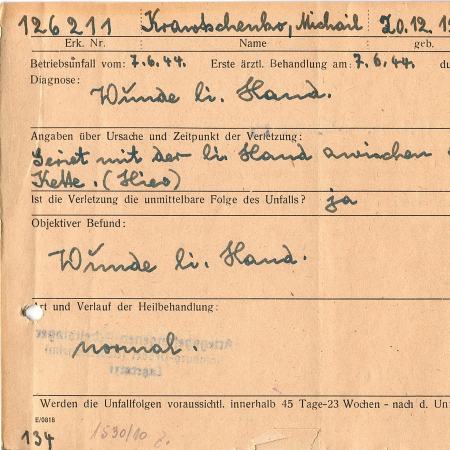 126211 Krawtschenko, Michail 20.12.1
Erk. Nr. Name geb.
Betriebsunfall vom: 7.6.44. Erste ärztl. Behandlung am: 7.6.44. du
Diagnose:
Wunde li. Hand.
Angaben über Ursache und Zeitpunkt der Verletzung:
Geriet mit der li. Hand zwischen
Kette. (Hieb)
Ist die Verletzung die unmittelbare Folge des Unfalls? ja
Objektiver Befund:
Wunde li. Hand.
Art und Verlauf der Heilbehandlung:
normal.
Werden die Unfallfolgen voraussichtl. innerhalb 45 Tage-23 Wochen - nach d. Un
E/0816
134 1530/10